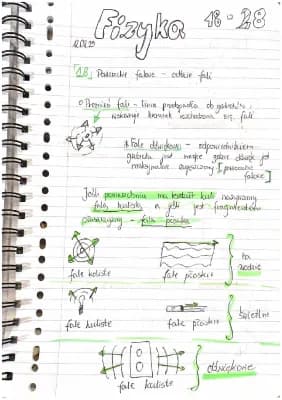 Fizyka 18-28
[18] Powierzchnie falowe - odbicie fali
Promień fali - linia prostopadła do grzbietów i
wskazuje kierunek rozchodzenia się fali
Fale dźwiękowe - odpowiednikiem
grzbietu jest miejsce gdzie dźwięk jest
maksymalnie zagęszczony [powierzchnie
falowe]
Jeśli powierzchnia ma kształt kuli nazywamy
falą kulistą a jeśli jest fragmentem
płaszczyzny - fala płaska
fale koliste
fale płaskie
na
wodzie
fale kuliste
fale płaskie
świetlne
fale kuliste
dźwiękowe